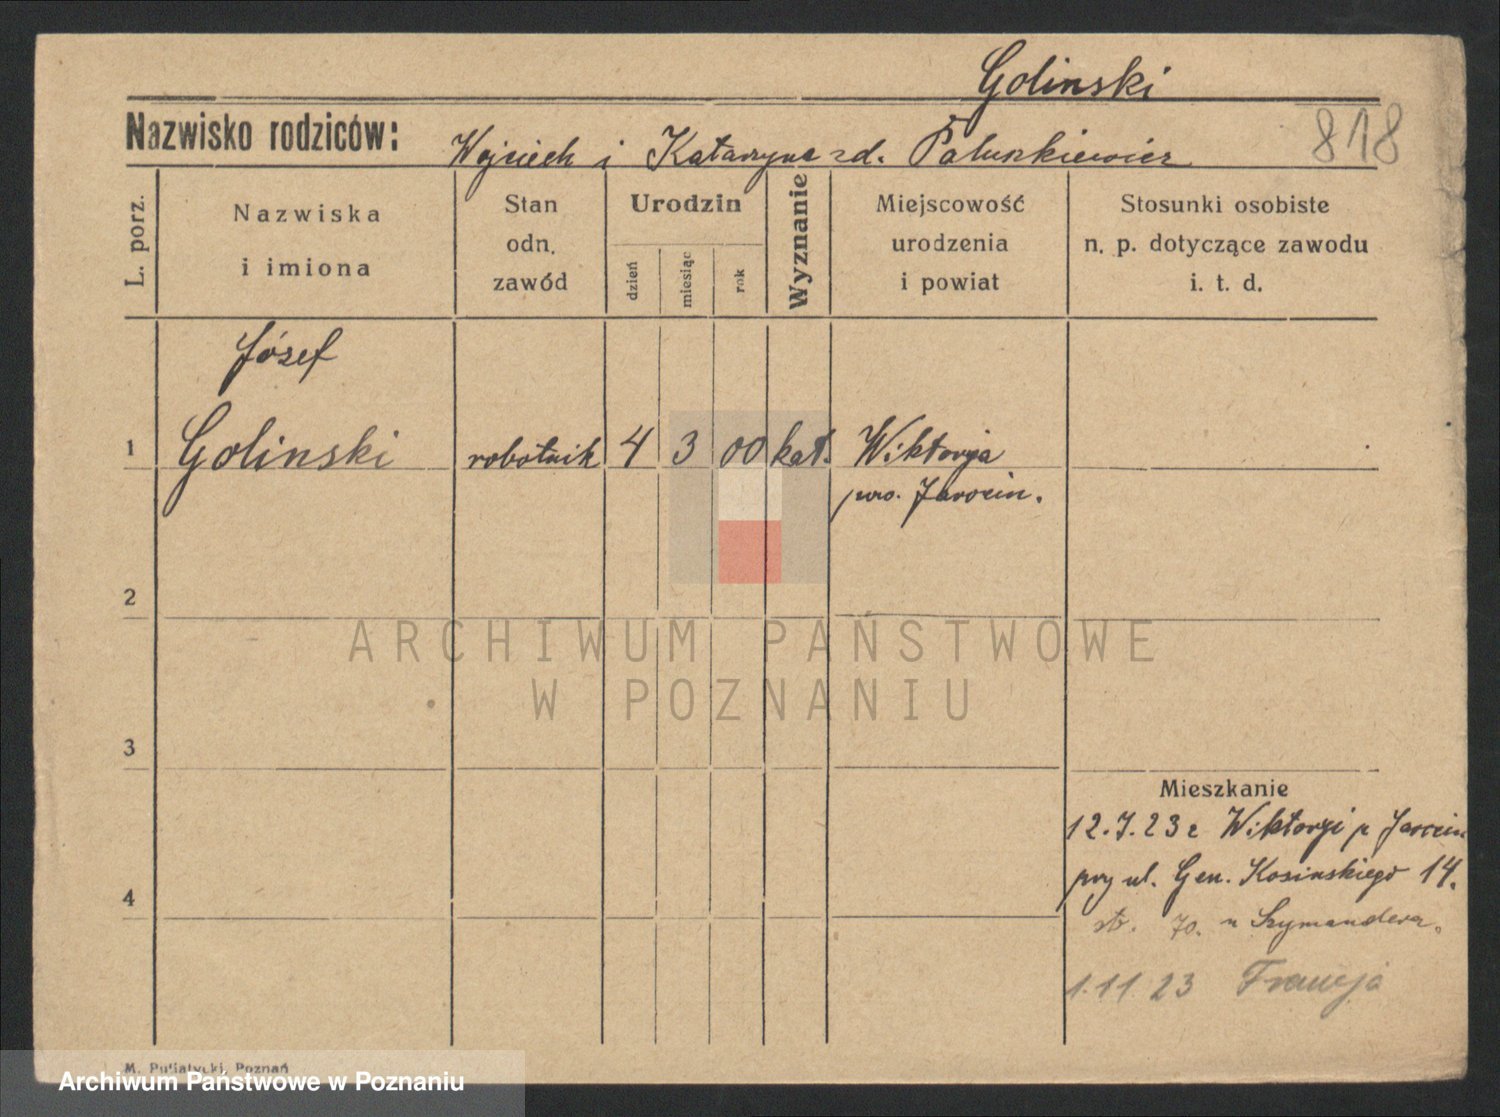 Golinski
Nazwisko rodziców: Wojciech i Katarzyna zd. Paluszkiewicz
818
L. porz.
Nazwiska
i imiona
Stan
odn.
zawód
Urodzin
dzień
miesiąc
rok
Wyznanie
Miejscowość
urodzenia
i powiat
Stosunki osobiste
n. p. dotyczące zawodu
i. t. d.
Józef
1 Golinski robotnik 4 3 00 kat. Wiktorja
pow. Jarocin.
2
ARCHIWUM PAŃSTWOWE
W POZNANIU
3
Mieszkanie
12.7.23 z Wiktorji p Jarocin
przy ul. Gen. Kosinskiego 14.
4
70. u Szymandera.
1.11.23 Francja
M. Putiatycki, Poznań
Archiwum Państwowe w Poznaniu